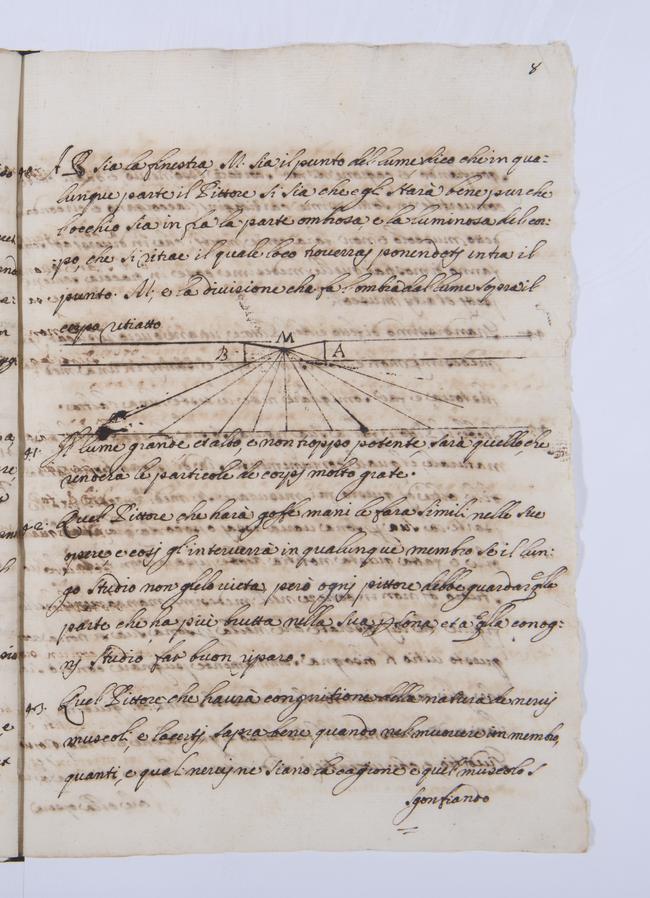 8
40. A B sia la finestra, M. sia il punto del lume, dico che in qua-
lunque parte il Pittore si sia, che egli stara bene pur che
l'occhio sia in fra la parte ombrosa, e la luminosa del cor-
po, che si ritrae il quale loco troverrai ponendoti intra il
punto. M, e la divisione che fa l'ombra dal lume sopra il
corpo ritratto
M
B A
41. Il lume grande et alto, e non troppo potente, sarà quello, che
renderà le particole de corpi molto grate.
42. Quel Pittore che harà goffe mani le farà simili nelle sue
opere e così gl'interverrà in qualunque membro se il lun-
go studio non glelo vieta, però ogni pittore debbe guardar qlla
parte che ha più brutta nella sua psona et a qlla con og-
ni studio far buon riparo.
43. Quel Pittore che haurà cognitione della natura de nervi
muscoli, e lacerti saprà bene quando nel muovere un membro,
quanti, e quali nervi ne siano la cagione e quel muscolo s
sgonfiando